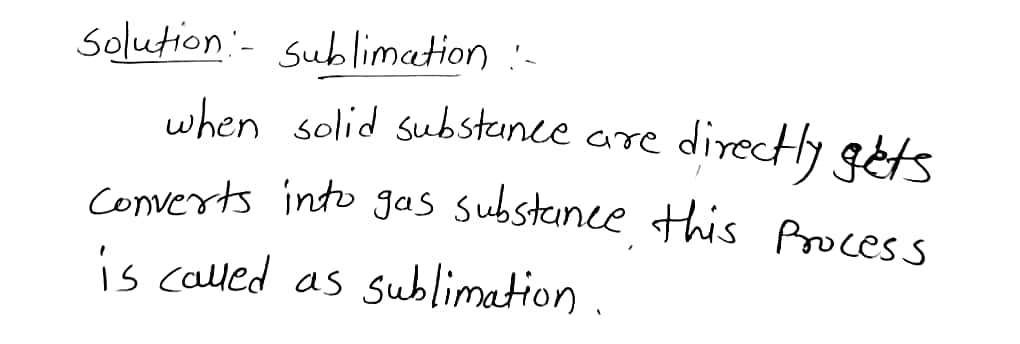 Solution:- Sublimation :-
when solid substance are directly gets
converts into gas substance, this Process
is called as sublimation.